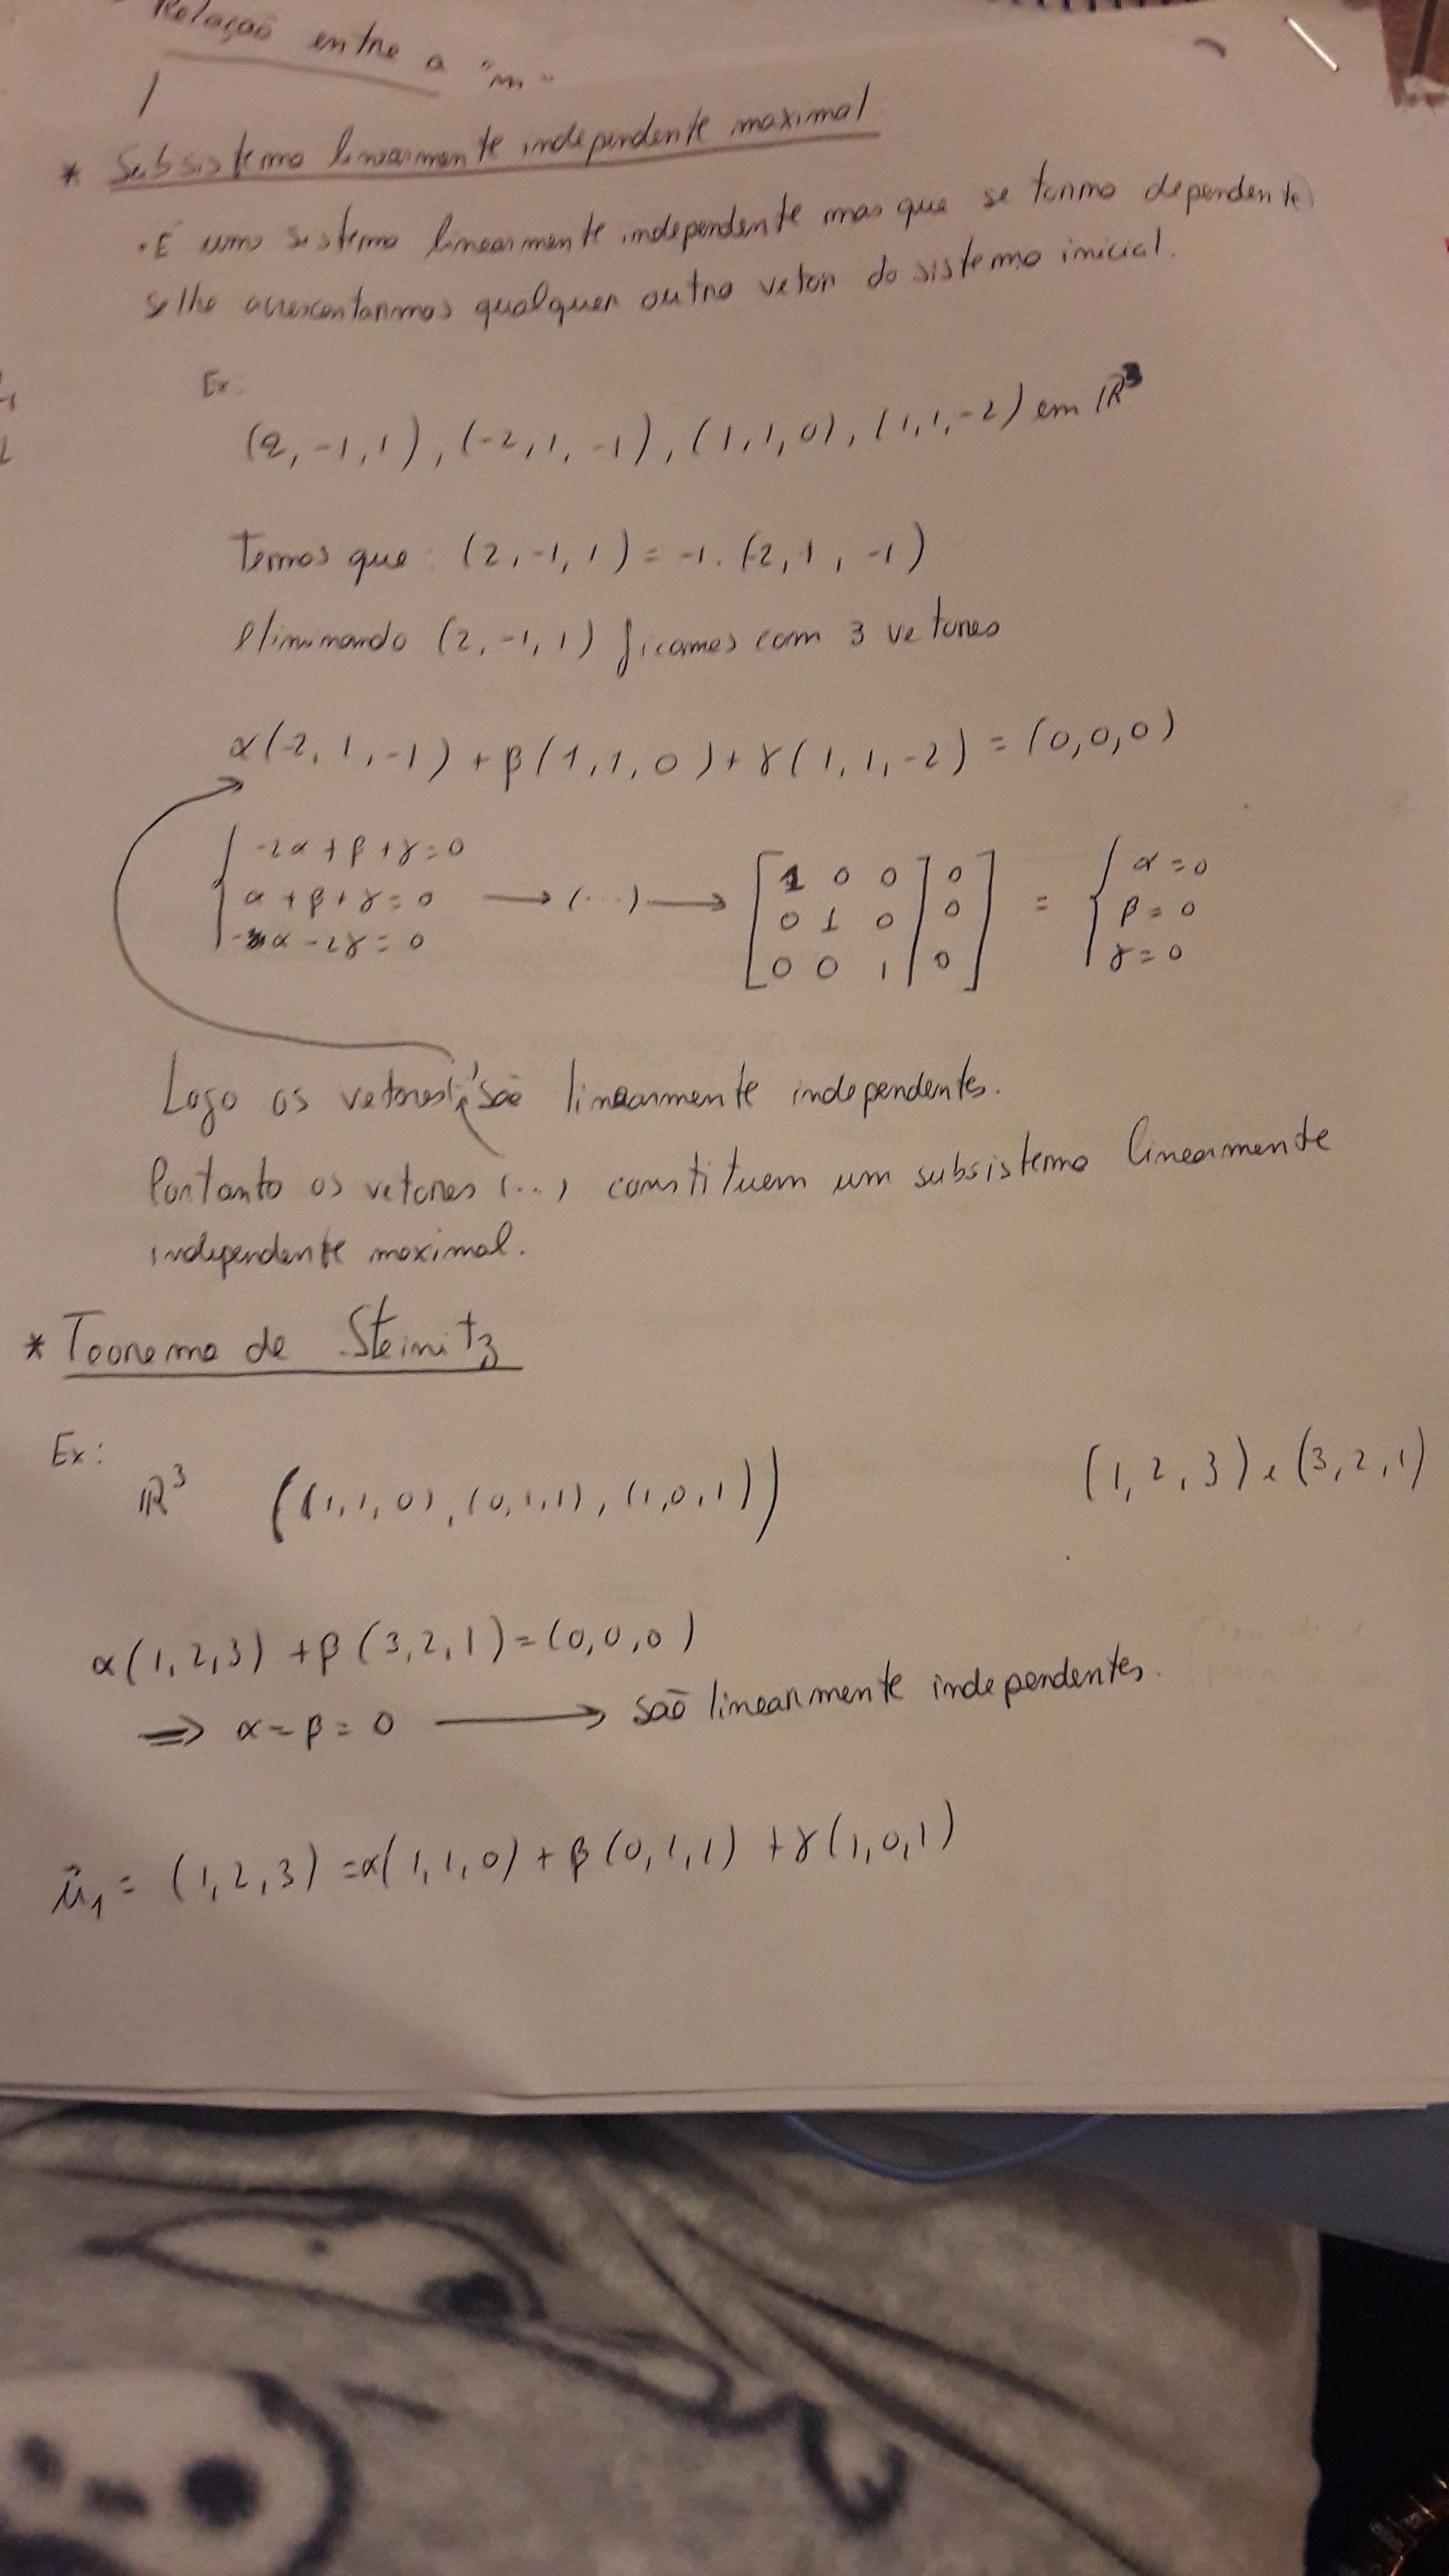 Relação entre a "m"
* Subsistema linearmente independente maximal
• É um sistema linearmente independente mas que se torna dependente
se lhe acrescentarmos qualquer outro vetor do sistema inicial.
Ex:
(2, -1, 1), (-2, 1, -1), (1, 1, 0), (1, 1, -2) em ℝ³
Temos que: (2, -1, 1) = -1. (-2, 1, -1)
eliminando (2, -1, 1) ficamos com 3 vetores
α(-2, 1, -1) + β(1, 1, 0) + γ(1, 1, -2) = (0, 0, 0)
{ -2α + β + γ = 0
α + β + γ = 0 → (...) → [1 0 0 | 0; 0 1 0 | 0; 0 0 1 | 0] = { α = 0, β = 0, γ = 0
-α - 2γ = 0
Logo os vetores são linearmente independentes.
Portanto os vetores (...) constituem um subsistema linearmente
independente maximal.
* Teorema de Steinitz
Ex:
ℝ³ ((1, 1, 0), (0, 1, 1), (1, 0, 1)) (1, 2, 3) e (3, 2, 1)
α(1, 2, 3) + β(3, 2, 1) = (0, 0, 0)
⇒ α = β = 0 → são linearmente independentes.
u₁ = (1, 2, 3) = α(1, 1, 0) + β(0, 1, 1) + γ(1, 0, 1)